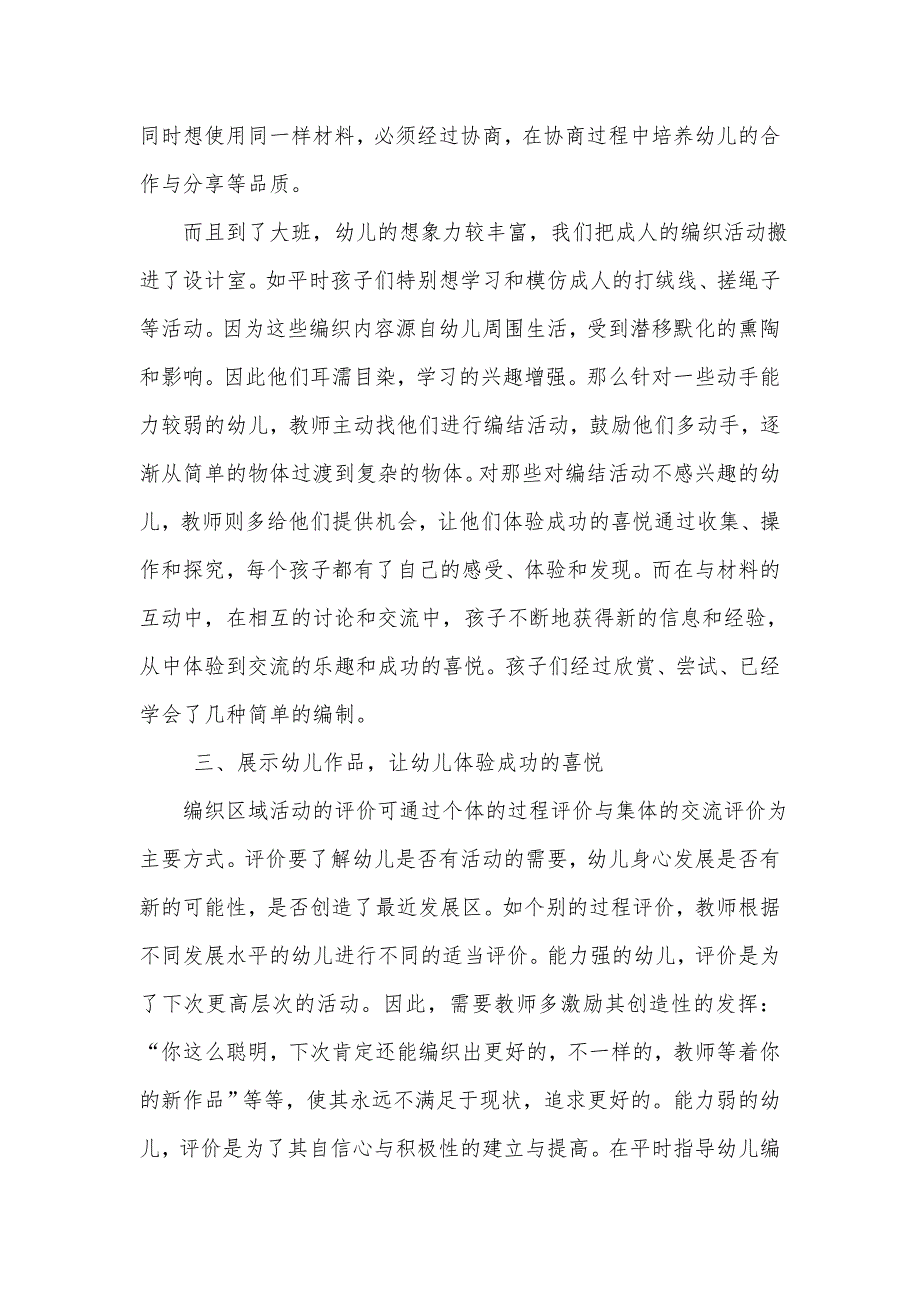 同时想使用同一样材料，必须经过协商，在协商过程中培养幼儿的合
作与分享等品质。
而且到了大班，幼儿的想象力较丰富，我们把成人的编织活动搬
进了设计室。如平时孩子们特别想学习和模仿成人的打绒线、搓绳子
等活动。因为这些编织内容源自幼儿周围生活，受到潜移默化的熏陶
和影响。因此他们耳濡目染，学习的兴趣增强。那么针对一些动手能
力较弱的幼儿，教师主动找他们进行编结活动，鼓励他们多动手，逐
渐从简单的物体过渡到复杂的物体。对那些对编结活动不感兴趣的幼
儿，教师则多给他们提供机会，让他们体验成功的喜悦通过收集、操
作和探究，每个孩子都有了自己的感受、体验和发现。而在与材料的
互动中，在相互的讨论和交流中，孩子不断地获得新的信息和经验，
从中体验到交流的乐趣和成功的喜悦。孩子们经过欣赏、尝试、已经
学会了几种简单的编制。
三、展示幼儿作品，让幼儿体验成功的喜悦
编织区域活动的评价可通过个体的过程评价与集体的交流评价为
主要方式。评价要了解幼儿是否有活动的需要，幼儿身心发展是否有
新的可能性，是否创造了最近发展区。如个别的过程评价，教师根据
不同发展水平的幼儿进行不同的适当评价。能力强的幼儿，评价是为
了下次更高层次的活动。因此，需要教师多激励其创造性的发挥：
“你这么聪明，下次肯定还能编织出更好的，不一样的，教师等着你
的新作品”等等，使其永远不满足于现状，追求更好的。能力弱的幼
儿，评价是为了其自信心与积极性的建立与提高。在平时指导幼儿编